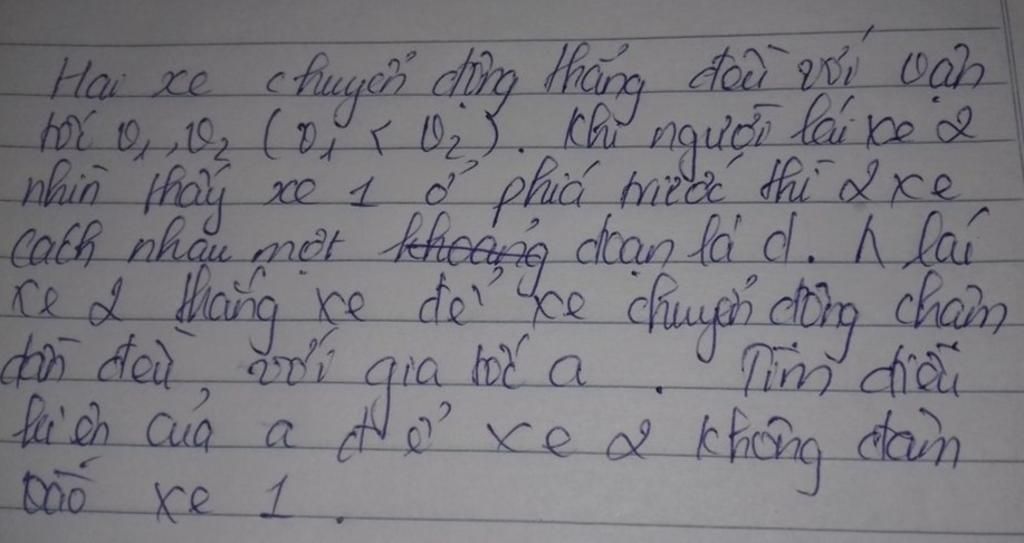 Hai xe chuyển động thẳng đều với vận
tốc v₁, v₂ (v₁ < v₂). Khi người lái xe 2
nhìn thấy xe 1 ở phía trước thì 2 xe
cách nhau một khoảng đoạn là d. N lái
xe 2 thắng xe để xe chuyển động chậm
dần đều, với gia tốc a. Tìm điều
kiện của a để xe 2 không đâm
vào xe 1.